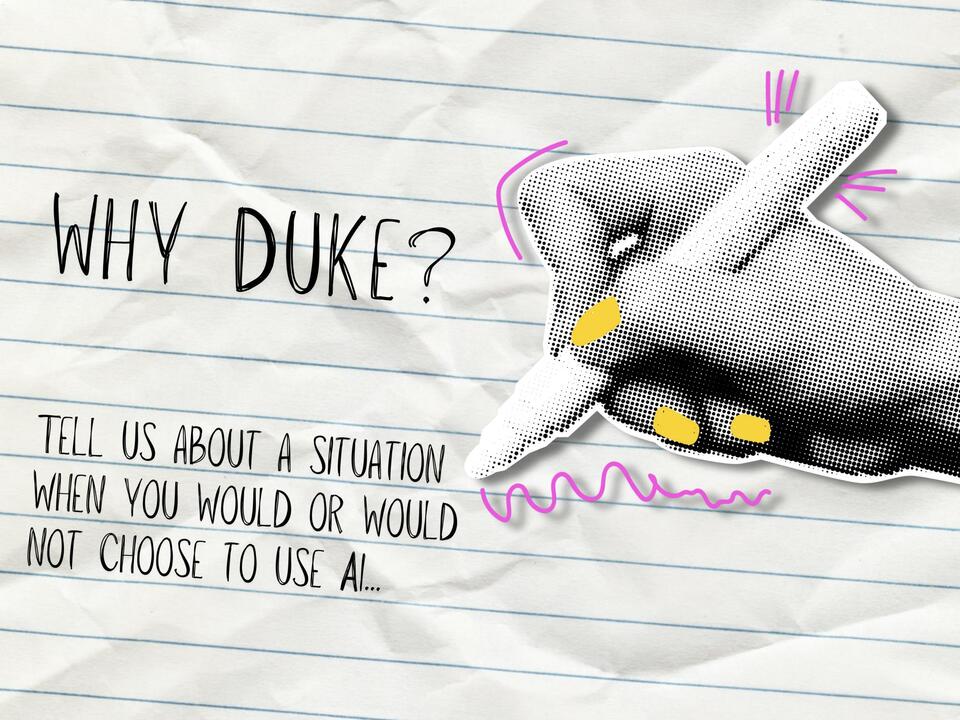 WHY DUKE?
TELL US ABOUT A SITUATION
WHEN YOU WOULD OR WOULD
NOT CHOOSE TO USE AI...